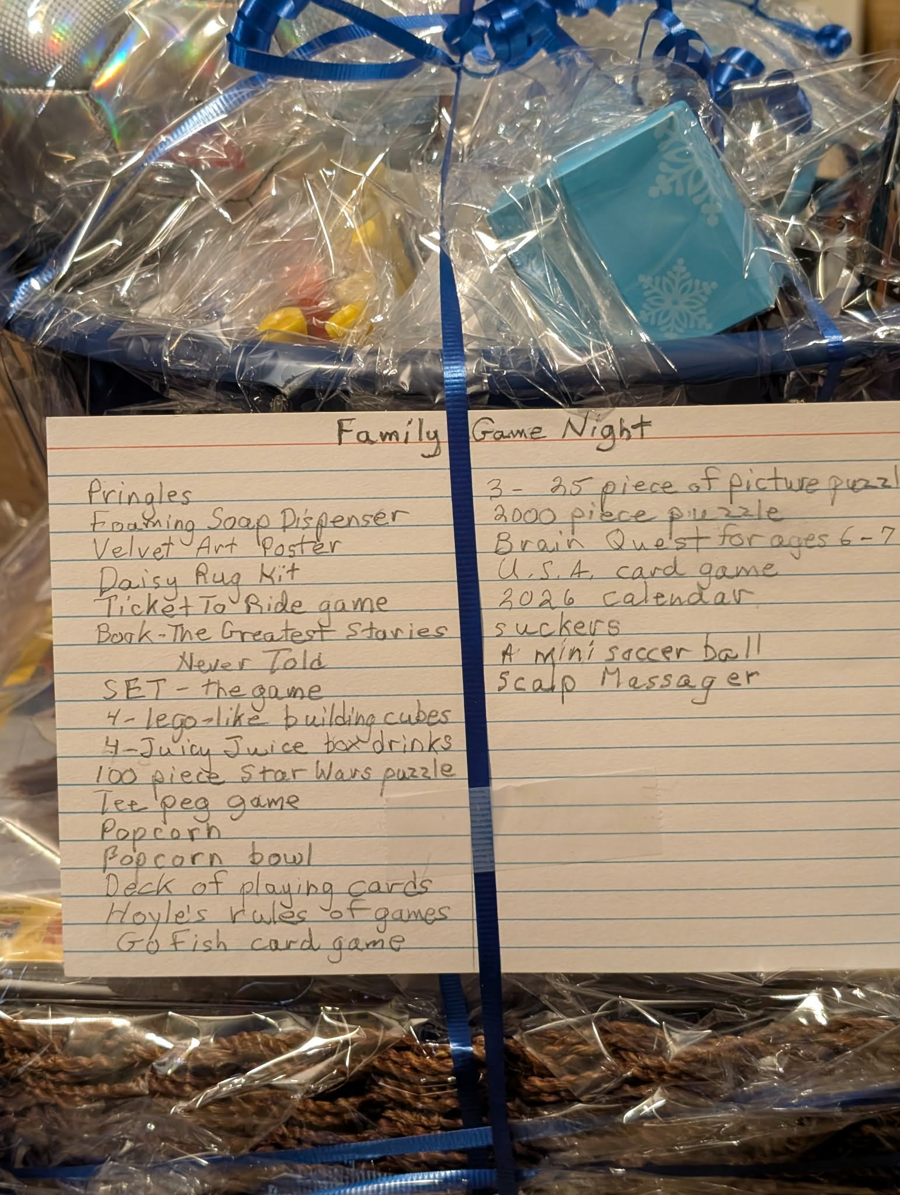 Family Game Night
Pringles
Foaming Soap Dispenser
Velvet Art Poster
Daisy Rug Kit
Ticket To Ride game
Book-The Greatest Stories
Never Told
SET - the game
4-lego-like building cubes
4-Juicy Juice box drinks
100 piece Star Wars puzzle
Tee peg game
Popcorn
Popcorn bowl
Deck of playing cards
Hoyle's rules of games
Go Fish card game
3- 25 piece of picture puzzl
2000 piece puzzle
Brain Quest for ages 6-7
U.S.A. card game
2026 calendar
suckers
A mini soccer ball
Scalp Massager